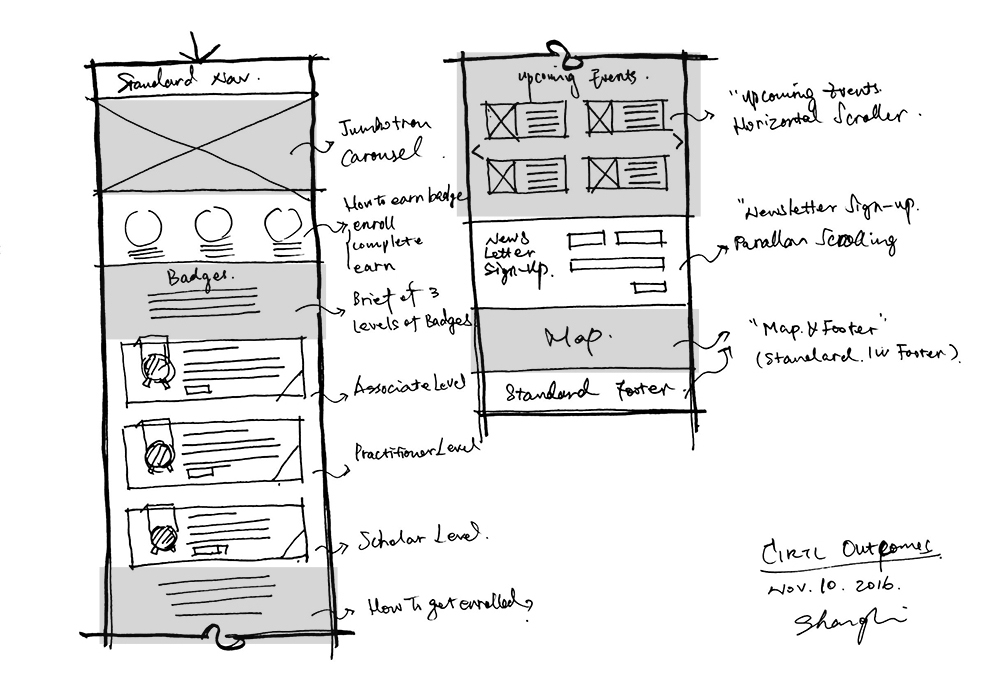 Standard Nav.
Jumbotron
Carousel.
How to earn badge
enroll
complete
earn
Badges.
Brief of 3
Levels of Badges
Associate Level
Practitioner Level
Scholar Level.
How to get enrolled?
Upcoming Events.
"Upcoming Events
Horizontal Scroller.
News
Letter
Sign-Up.
"Newsletter Sign-up.
Parallax Scrolling
Map.
"Map & Footer"
(Standard. IW Footer).
Standard Footer.
CIRTL Outcomes
Nov. 10. 2016.